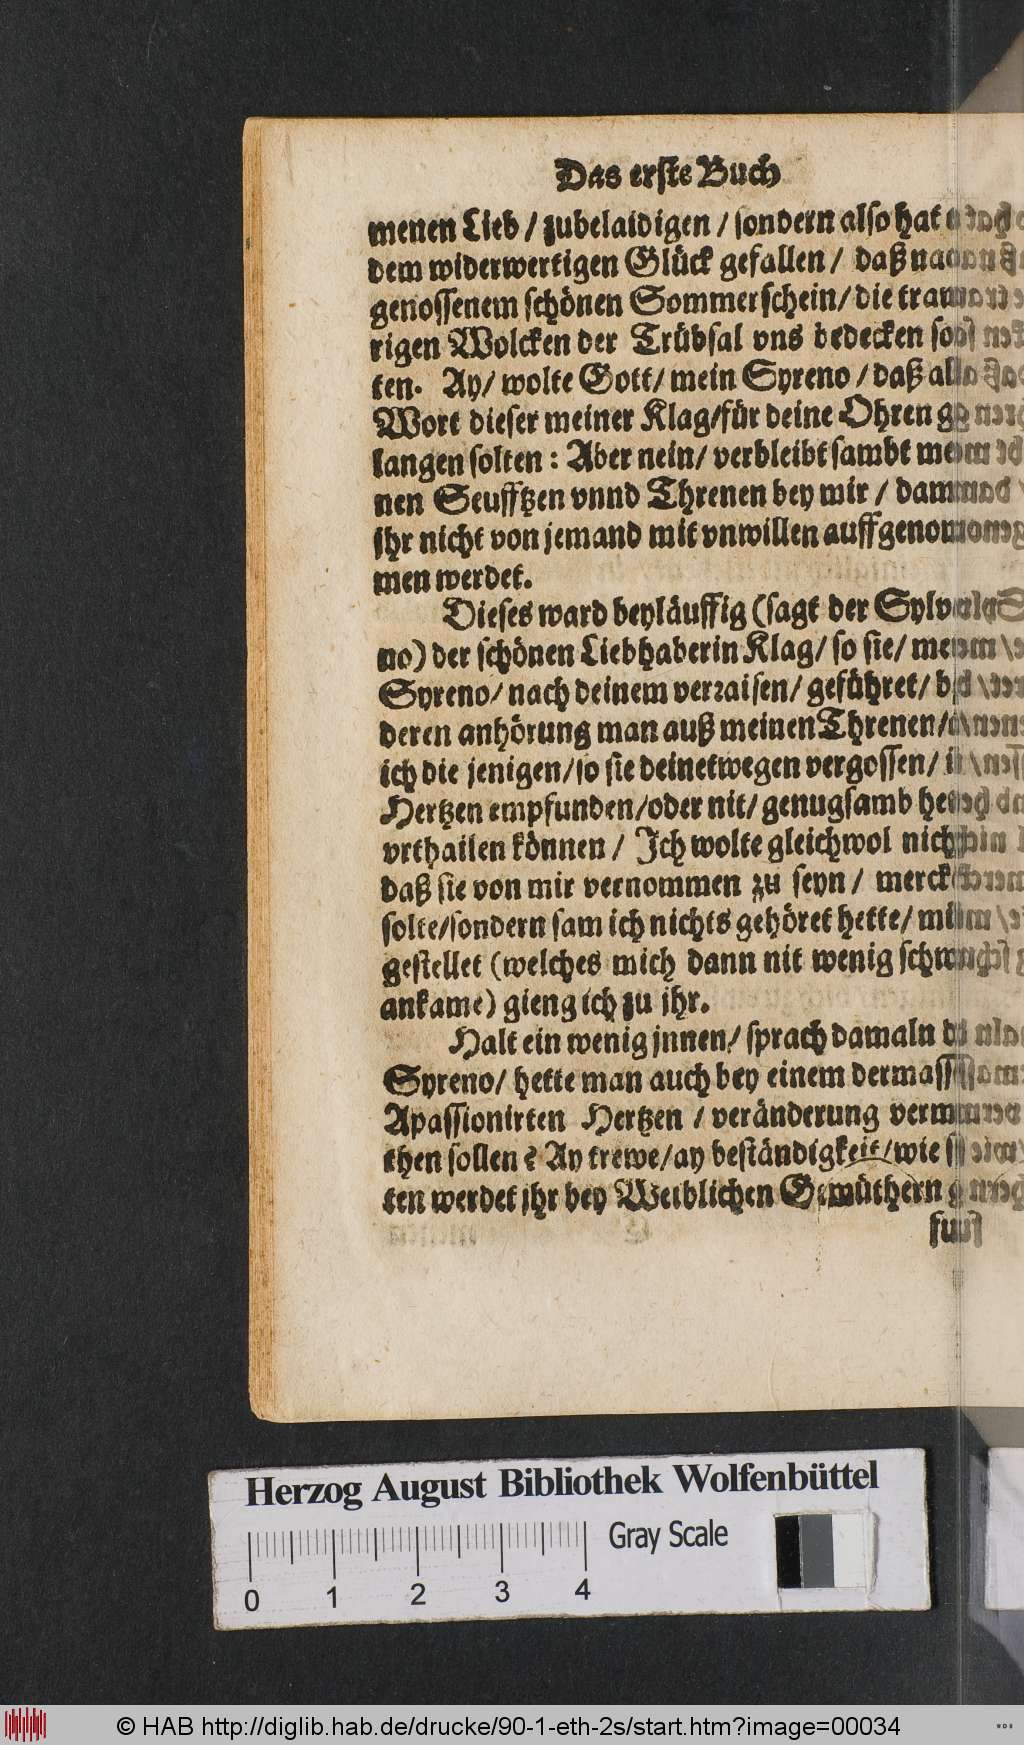 Das erste Buch
menen Lieb / zubelaidigen / sondern also hat
dem widerwertigen Glück gefallen / daß
genossenem schönen Sommerschein/ die
rigen Wolcken der Trübsal vns bedecken
ten. Ay/ wolte Gott/ mein Syreno / daß
Wort dieser meiner Klag/für deine Ohren
langen solten : Aber nein/ verbleibt sambt
nen Seufftzen vnnd Threnen bey mir /
jhr nicht von jemand mit vnwillen
men werdet.
Dieses ward beyläuffig (sagt der
no) der schönen Liebhaberin Klag/ so sie/
Syreno/ nach deinem verraisen/ geführet/
deren anhörung man auß meinen Threnen/
ich die jenigen/so sie deinetwegen vergossen/
Hertzen empfunden/oder nit/ genugsamb
vrthailen können / Jch wolte gleichwol
daß sie von mir vernommen zu seyn /
solte/sondern sam ich nichts gehöret hette/
gestellet (welches mich dann nit wenig
ankame) gieng ich zu jhr.
Halt ein wenig jnnen/ sprach damaln
Syreno/ hette man auch bey einem
Apassionirten Hertzen / veränderung
then sollen? Ay trewe/ay beständigkeit/wie
ten werdet jhr bey Weiblichen Gemüthern
Herzog August Bibliothek Wolfenbüttel
Gray Scale
0 1 2 3 4
© HAB http://diglib.hab.de/drucke/90-1-eth-2s/start.htm?image=00034